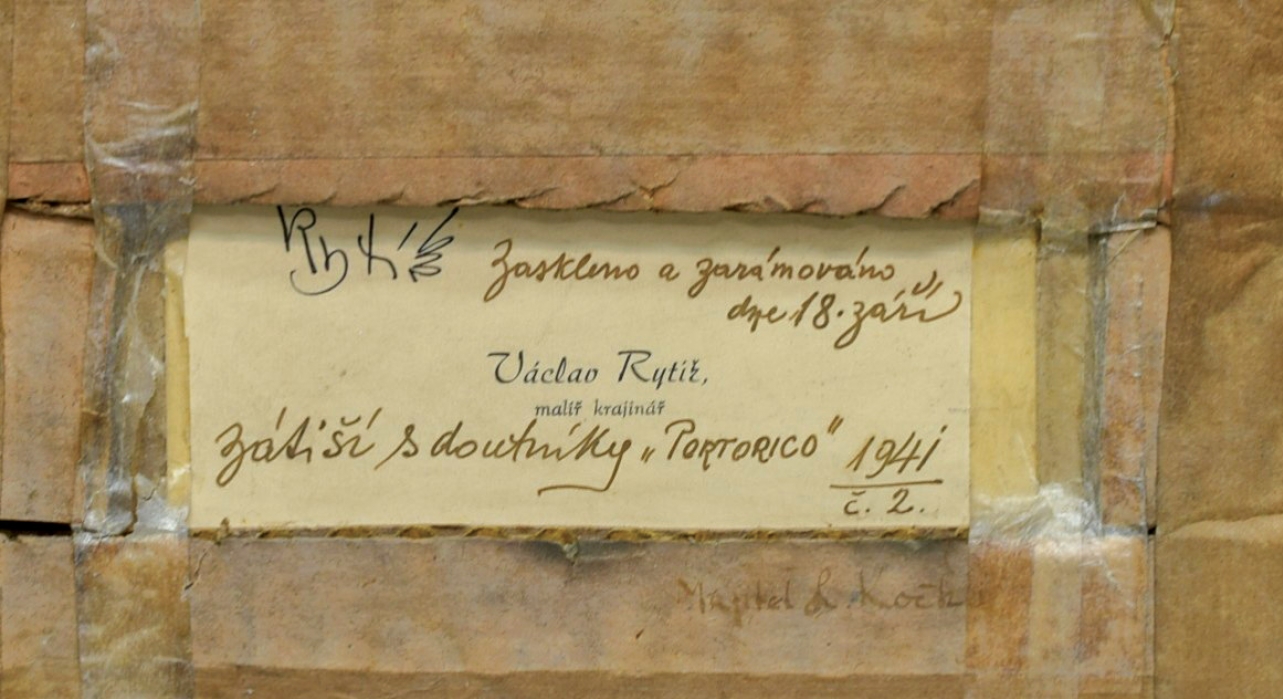 Rytíř
Zaskleno a zarámováno
dne 18. září
Václav Rytíř,
malíř krajinář
Zátiší s doutníky „PORTORICO" 1941
č. 2.
Majitel L. Kočk